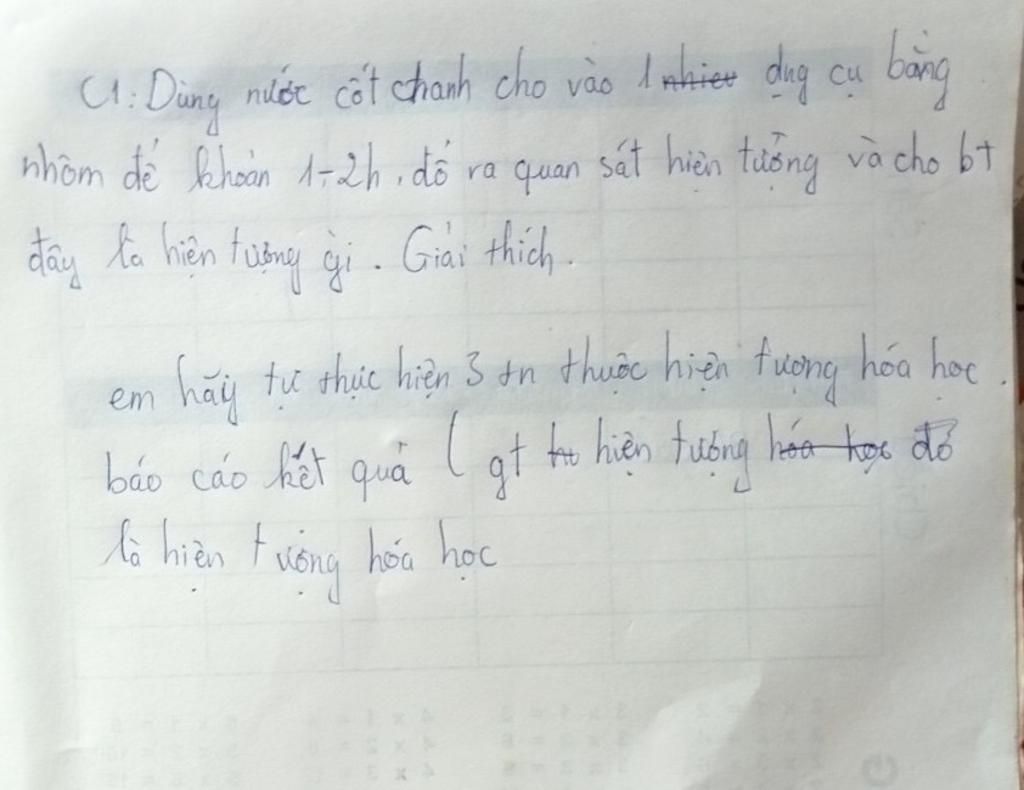 C1: Dùng nước cốt chanh cho vào 1 nhiều dụng cụ bằng
nhôm để khoản 1-2h, đổ ra quan sát hiện tượng và cho bt
đây là hiện tượng gì. Giải thích.
em hãy tự thực hiện 3 tn thuộc hiện tượng hóa học.
báo cáo kết quả ( gt hiện tượng hóa học đó
là hiện tượng hóa học